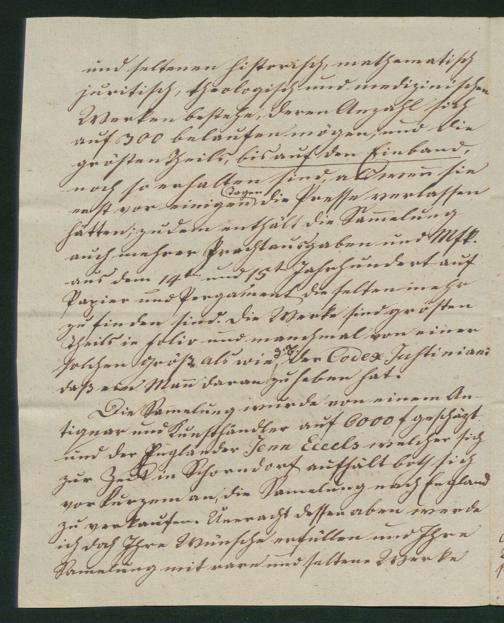 und seltenen historisch, mathematisch
juritisch, theologisch und medizinischen
Werken bestehe, deren Anzahl sich
auf 300 belaufen mögen, und die
grösten Theils, bis auf den Einband,
noch so erhalten sind, als wenn sie
erst vor einigen Tagen die Presse verlassen
hätten; zudem enthält die Sam̅elung
auch mehrer Prachtausgaben und Mss.
aus dem 14t und 15t Jahrhundert auf
Papier und Pergament die selten mehr
zu finden sind. Die Werke sind grösten
Theils in folio und manchmal von einer
solchen Größe als wie z.B. der Codex Justiniani
daß ein Man̅ daran zu heben hat.
Die Samelung wurde von einem An-
tiquar und Kunsthändler auf 6000 f geschäzt
und der Engländer welcher sich
zur Zeit in Schorndorf aufhält bott sich
vor kurzem an, die Samelung nach England
zu verkaufen. Ueracht dessen aber werde
ich doch Ihre Wünsche erfüllen und Ihre
Samelung mit rare und seltene Werke